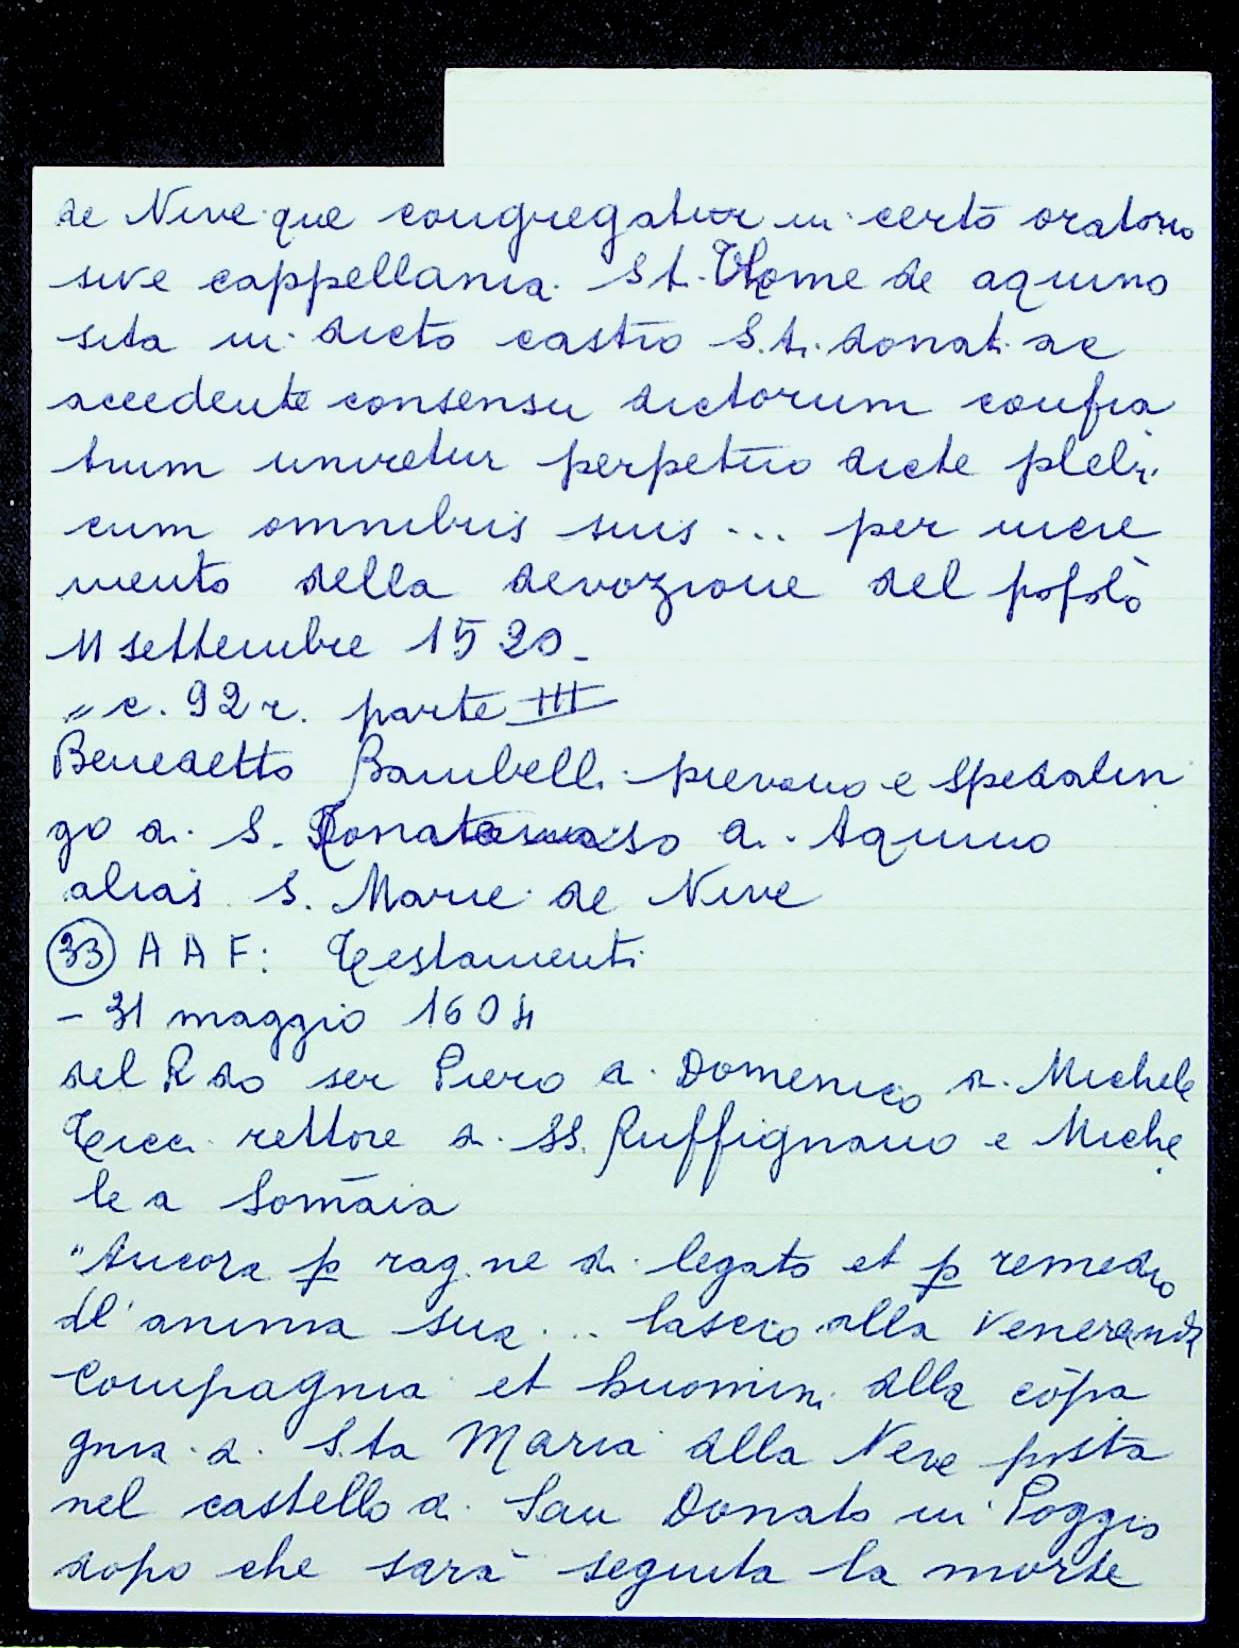 de Nive que congregatur in certo oratorio
sive cappellania St. Thome de aquino
sita in dicto castro S.ti donati ac
accedente consensu dictorum confra
trum uniretur perpetuo dicte plebi
cum omnibus suis ... per incre
mento della devozione del popolo
11 settembre 1520 -
" c. 92 r. parte III
Benedetto Bambelli pievano e spedalin
go di S. aso di Aquino
alias S. Marie de Nive
(33) A A F: Testamenti
- 31 maggio 1604
del R do ser Piero di Domenico di Michele
Cecci rettore di SS. Ruffignano e Miche
le a Somaia
"Ancora p rag.ne di legato et p remedio
dl'anima sua ... lascio alla Veneranda
Compagnia et huomini dlla cōpa
gnia di S.ta Maria dlla Neve posta
nel castello di San Donato in Poggio
dopo che sarà seguita la morte